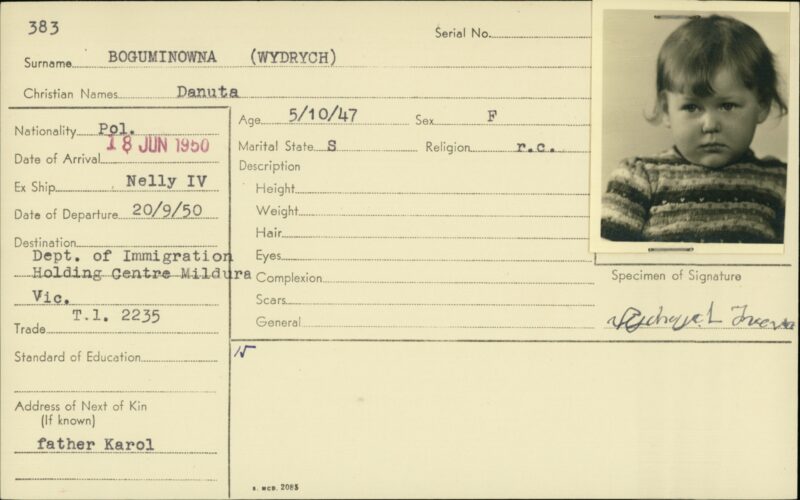 383
Serial No.
Surname BOGUMINOWNA (WYDRYCH)
Christian Names Danuta
Nationality Pol.
Date of Arrival 18 JUN 1950
Ex Ship Nelly IV
Date of Departure 20/9/50
Destination
Dept. of Immigration
Holding Centre Mildura
Vic.
T.l. 2235
Trade
Standard of Education
Address of Next of Kin
(If known)
father Karol
Age 5/10/47 Sex F
Marital State S Religion r.c.
Description
Height
Weight
Hair
Eyes
Complexion
Scars
General
Specimen of Signature
15
S. MCD. 2085